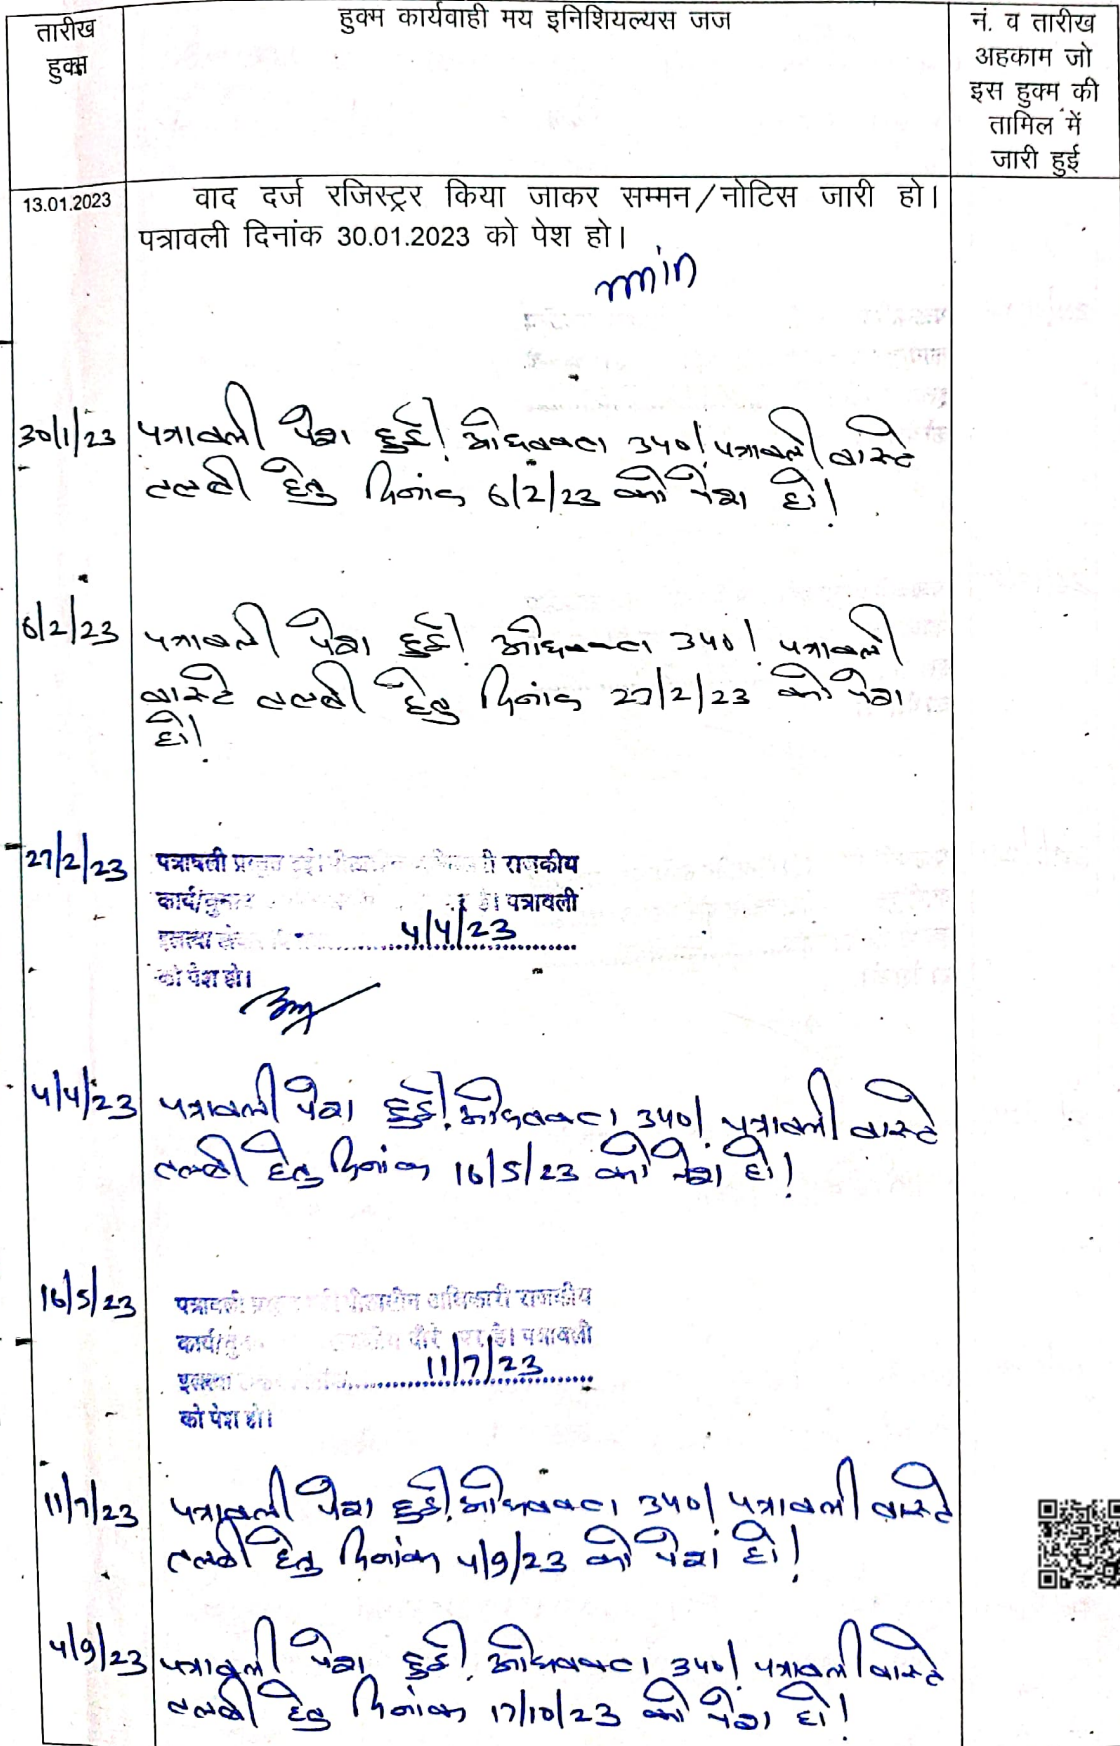 तारीख
हुक्म
हुक्म कार्यवाही मय इनिशियल्यस जज
नं. व तारीख
अहकाम जो
इस हुक्म की
तामिल में
जारी हुई
13.01.2023
वाद दर्ज रजिस्ट्रर किया जाकर सम्मन/नोटिस जारी हो।
पत्रावली दिनांक 30.01.2023 को पेश हो।
30/1/23
पत्रावली पेश हुई। अधिवक्ता उप०। पत्रावली वास्ते
तलबी हेतु दिनांक 6/2/23 को पेश हो।
6/2/23
पत्रावली पेश हुई। अधिवक्ता उप०। पत्रावली
वास्ते तलबी हेतु दिनांक 27/2/23 को पेश
हो।
27/2/23
पत्रावली राजकीय
कार्य/ पत्रावली
4/4/23
को पेश हो।
4/4/23
पत्रावली पेश हुई। अधिवक्ता उप०। पत्रावली वास्ते
तलबी हेतु दिनांक 16/5/23 को पेश हो।
16/5/23
पत्रावली पीठासीन अधिकारी राजकीय
कार्य/ दौरे पर है। पत्रावली
11/7/23
को पेश हो।
11/7/23
पत्रावली पेश हुई। अधिवक्ता उप०। पत्रावली वास्ते
तलबी हेतु दिनांक 4/9/23 को पेश हो।
4/9/23
पत्रावली पेश हुई। अधिवक्ता उप०। पत्रावली वास्ते
तलबी हेतु दिनांक 17/10/23 को पेश हो।